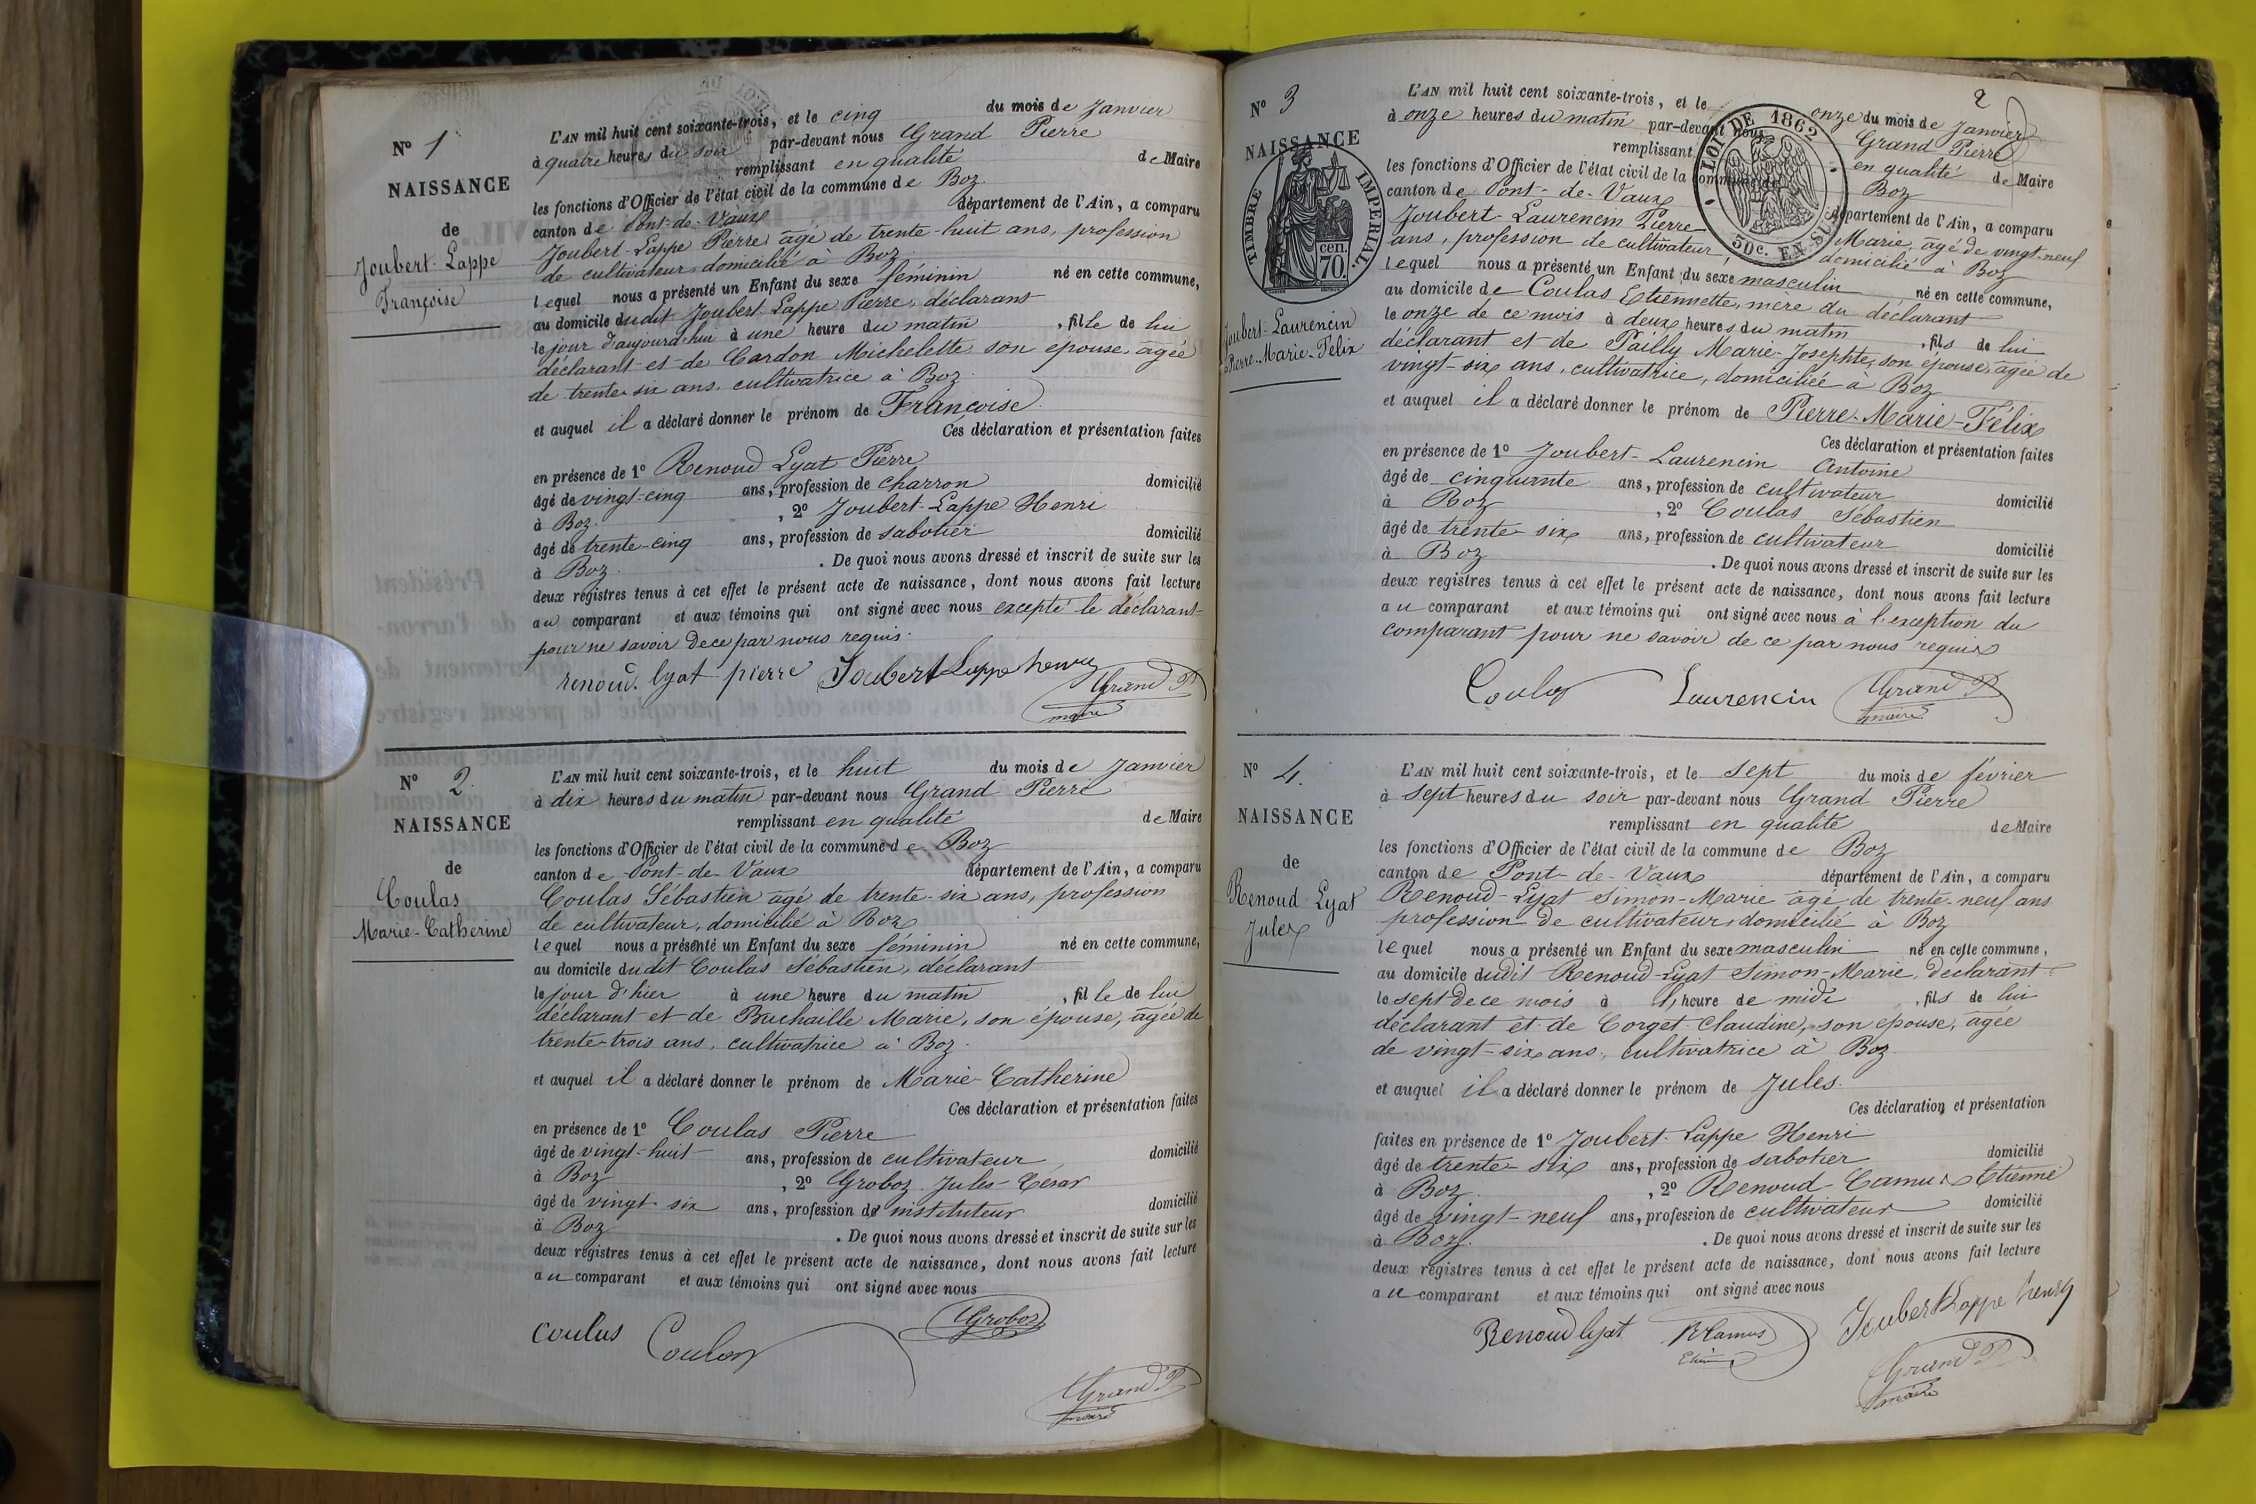 N° 1
NAISSANCE
de
Joubert-Lappe
Françoise
L'AN mil huit cent soixante-trois, et le cinq du mois de Janvier
à quatre heures du soir par-devant nous Grand Pierre
remplissant en qualité de Maire
les fonctions d'Officier de l'état civil de la commune de Boz
canton de Pont-de-Vaux département de l'Ain, a comparu
Joubert-Lappe Pierre, âgé de trente-huit ans, profession
de cultivateur domicilié à Boz
lequel nous a présenté un Enfant du sexe féminin né en cette commune,
au domicile dudit Joubert Lappe Pierre, déclarant
le jour d'aujourd'hui à une heure du matin, fille de lui
déclarant et de Cardon Michelette, son épouse, agée
de trente six ans, cultivatrice à Boz.
et auquel il a déclaré donner le prénom de Françoise
Ces déclaration et présentation faites
en présence de 1° Renoud Lyat Pierre
âgé de vingt-cinq ans, profession de charron domicilié
à Boz, 2° Joubert-Lappe Henri
âgé de trente-cinq ans, profession de sabotier domicilié
à Boz. De quoi nous avons dressé et inscrit de suite sur les
deux registres tenus à cet effet le présent acte de naissance, dont nous avons fait lecture
au comparant et aux témoins qui ont signé avec nous excepté le déclarant
pour ne savoir de ce par nous requis.
renoud lyat pierre Joubert Lappe henry
Grand P
maire
N° 2.
NAISSANCE
de
Coulas
Marie-Catherine
L'AN mil huit cent soixante-trois, et le huit du mois de Janvier
à dix heures du matin par-devant nous Grand Pierre
remplissant en qualité de Maire
les fonctions d'Officier de l'état civil de la commune de Boz
canton de Pont-de-Vaux département de l'Ain, a comparu
Coulas Sébastien âgé de trente-six ans, profession
de cultivateur, domicilié à Boz
lequel nous a présenté un Enfant du sexe féminin né en cette commune,
au domicile dudit Coulas Sébastien, déclarant
le jour d'hier à une heure du matin, fille de lui
déclarant et de Buchaille Marie, son épouse, agée de
trente-trois ans, cultivatrice à Boz.
et auquel il a déclaré donner le prénom de Marie-Catherine
Ces déclaration et présentation faites
en présence de 1° Coulas Pierre
âgé de vingt-huit ans, profession de cultivateur domicilié
à Boz, 2° Groboz Jules-César
âgé de vingt six ans, profession de instituteur domicilié
à Boz. De quoi nous avons dressé et inscrit de suite sur les
deux registres tenus à cet effet le présent acte de naissance, dont nous avons fait lecture
au comparant et aux témoins qui ont signé avec nous
coulas Coulas Groboz
Grand P
maire
2
N° 3
NAISSANCE
TIMBRE IMPERIAL.
cen.
70.
LOI DE 1862
50c. EN SUS
Joubert-Laurencin
Pierre-Marie-Félix
L'AN mil huit cent soixante-trois, et le onze du mois de Janvier
à onze heures du matin par-devant nous Grand-Pierre
remplissant en qualité de Maire
les fonctions d'Officier de l'état civil de la commune de Boz
canton de Pont-de-Vaux département de l'Ain, a comparu
Joubert-Laurencin Pierre Marie, âgé de vingt-neuf
ans, profession de cultivateur, domicilié à Boz
lequel nous a présenté un Enfant du sexe masculin né en cette commune,
au domicile de Coulas Etiennette, mere du déclarant
le onze de ce mois à deux heures du matin, fils de lui
déclarant et de Pailly Marie-Josephte, son épouse, agée de
vingt-six ans, cultivatrice, domiciliée à Boz
et auquel il a déclaré donner le prénom de Pierre-Marie-Félix
Ces déclaration et présentation faites
en présence de 1° Joubert-Laurencin Antoine
âgé de cinquante ans, profession de cultivateur domicilié
à Boz, 2° Coulas Sébastien
âgé de trente six ans, profession de cultivateur domicilié
à Boz. De quoi nous avons dressé et inscrit de suite sur les
deux registres tenus à cet effet le présent acte de naissance, dont nous avons fait lecture
au comparant et aux témoins qui ont signé avec nous à l'exception du
comparant pour ne savoir de ce par nous requis
Coulas Laurencin Grand P
maire
N° 4.
NAISSANCE
de
Renoud Lyat
Jules
L'AN mil huit cent soixante-trois, et le sept du mois de février
à sept heures du soir par-devant nous Grand Pierre
remplissant en qualité de Maire
les fonctions d'Officier de l'état civil de la commune de Boz
canton de Pont-de-Vaux département de l'Ain, a comparu
Renoud-Lyat Simon-Marie âgé de trente-neuf ans
profession de cultivateur domicilié à Boz
lequel nous a présenté un Enfant du sexe masculin né en cette commune,
au domicile dudit Renoud-Lyat Simon-Marie, déclarant
le sept de ce mois à l'heure de midi, fils de lui
déclarant et de Corget Claudine, son épouse, agée
de vingt-six ans, cultivatrice à Boz
et auquel il a déclaré donner le prénom de Jules.
Ces déclaration et présentation
faites en présence de 1° Joubert-Lappe Henri
âgé de trente-six ans, profession de sabotier domicilié
à Boz, 2° Renoud-Camus Etienne
âgé de vingt-neuf ans, profession de cultivateur domicilié
à Boz. De quoi nous avons dressé et inscrit de suite sur les
deux registres tenus à cet effet le présent acte de naissance, dont nous avons fait lecture
au comparant et aux témoins qui ont signé avec nous
Renoud lyat R Camus Joubert Lappe henry
Etienne
Grand P
maire